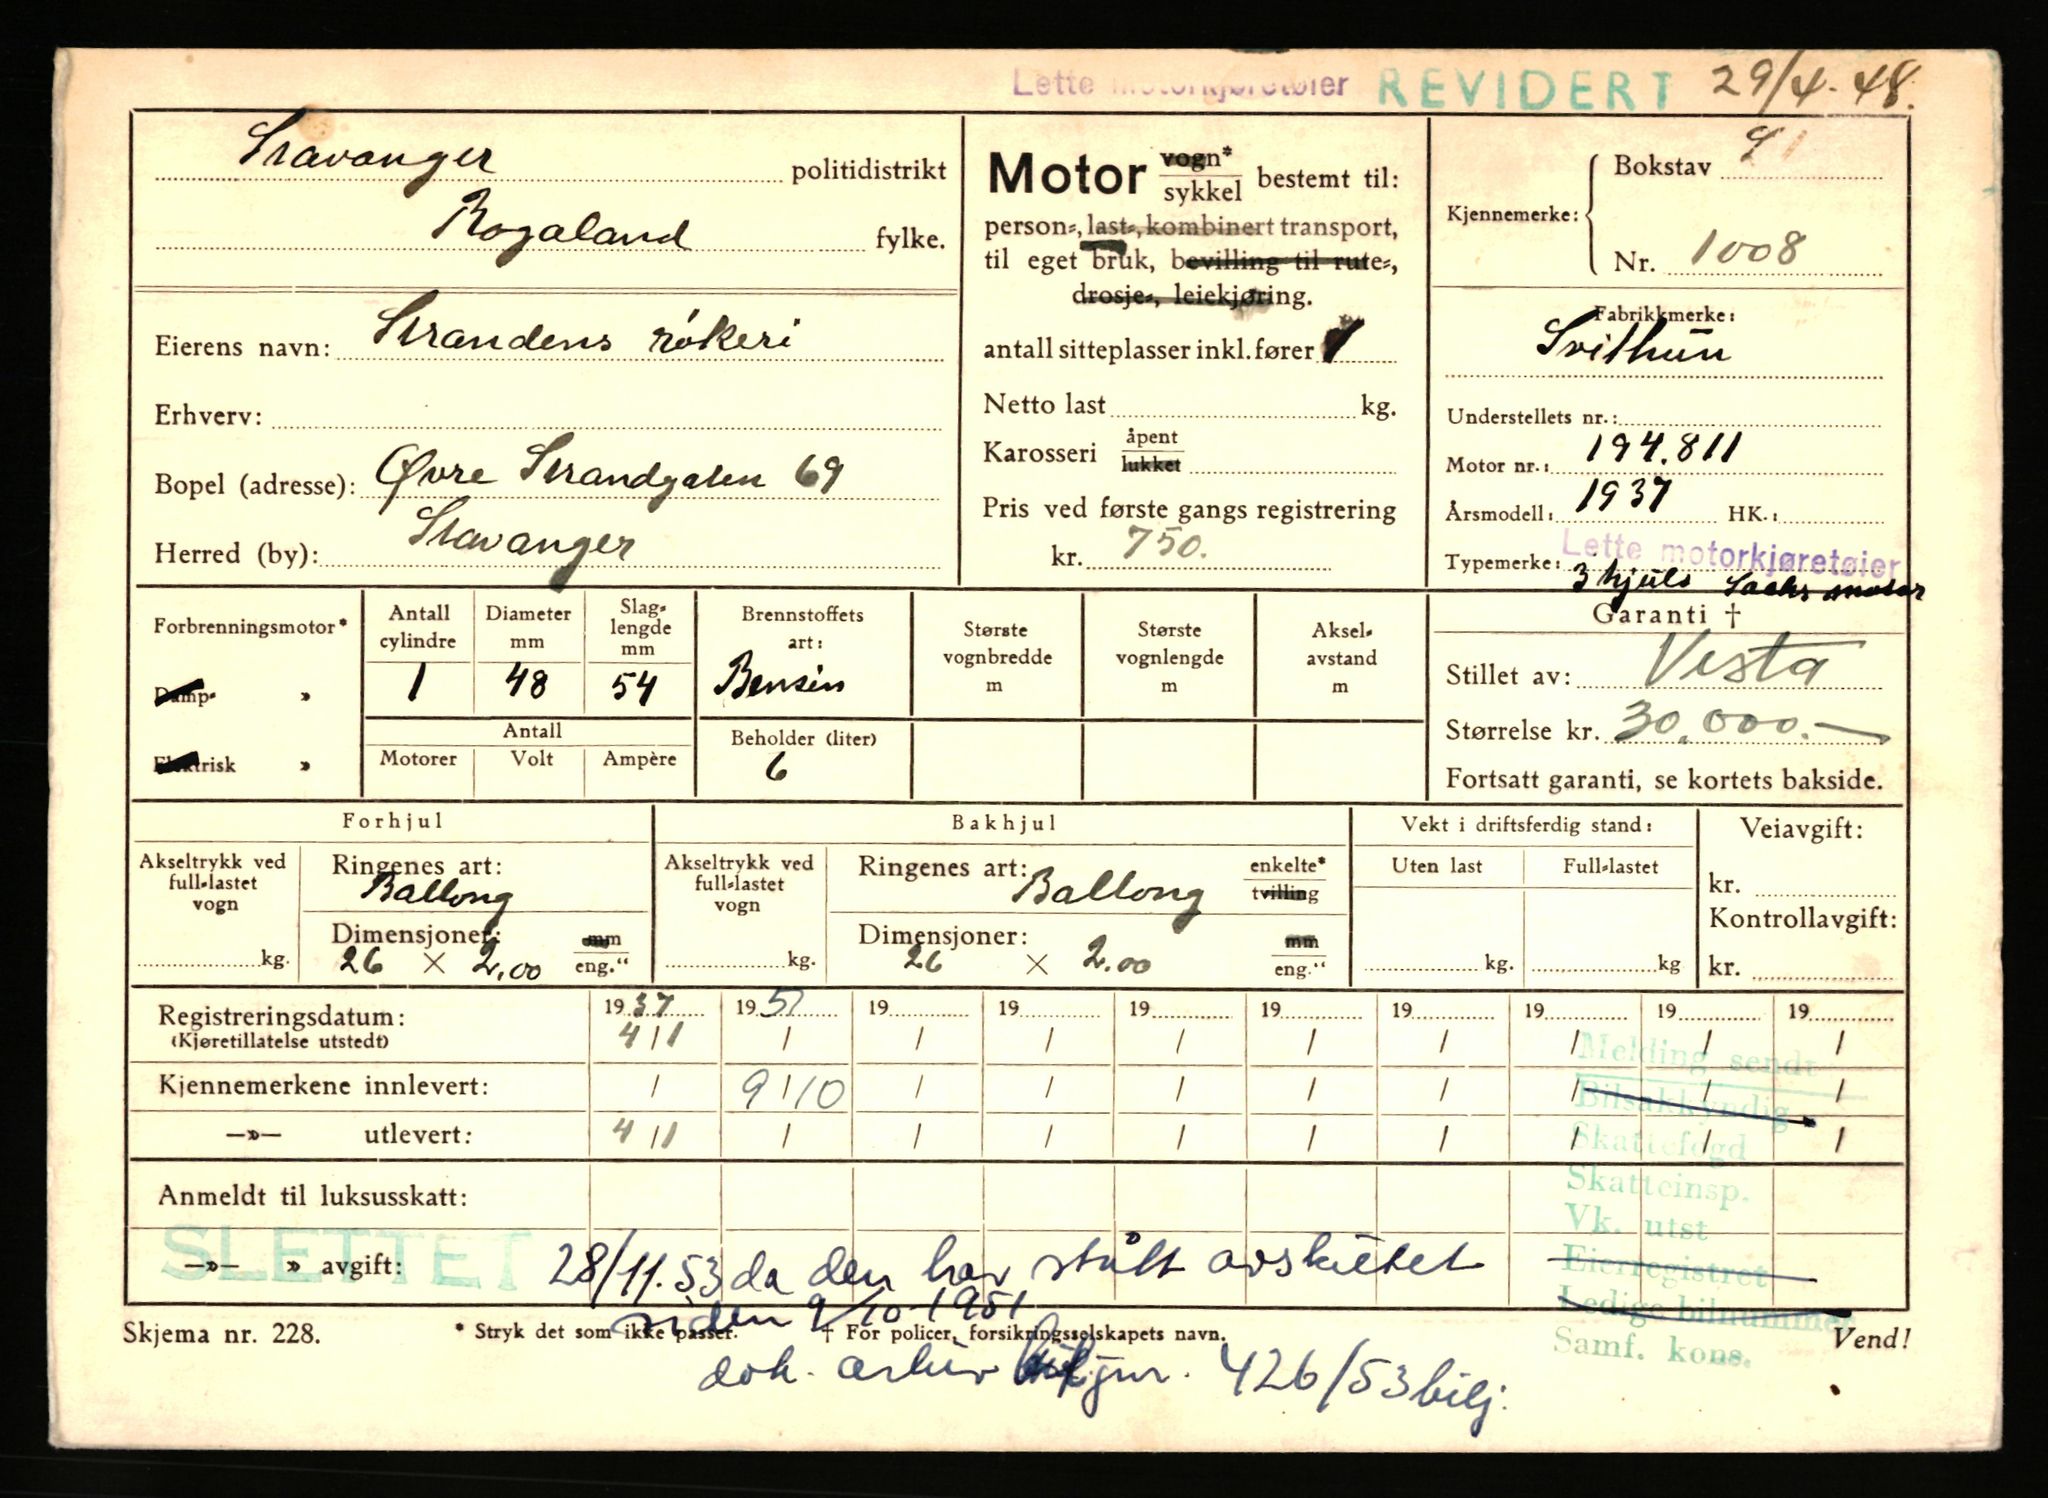 Lette motorkjøretøier REVIDERT 29/4-48.
Stavanger politidistrikt
Rogaland fylke.
Eierens navn: Strandens røkeri
Erhverv:
Bopel (adresse): Øvre Strandgaten 69
Herred (by): Stavanger
Motor vogn* sykkel bestemt til:
person-, last-, kombinert transport,
til eget bruk, bevilling til rute-,
drosje-, leiekjøring.
antall sitteplasser inkl. fører 1
Netto last kg.
Karosseri åpent lukket
Pris ved første gangs registrering
kr. 750.
Kjennemerke: Bokstav
Nr. 1008
Fabrikkmerke:
Svithun
Understellets nr.:
Motor nr.: 194.811
Årsmodell: 1937 HK.:
Lette motorkjøretøier
Typemerke: 3 hjuls Sachs motor
Garanti †
Stillet av: Vesta
Størrelse kr. 30.000.-
Fortsatt garanti, se kortets bakside.
Forbrenningsmotor*
Damp- »
Elektrisk »
Antall cylindre
1
Diameter mm
48
Slag-lengde mm
54
Antall
Motorer Volt Ampère
Brennstoffets art:
Bensin
Beholder (liter)
6
Største vognbredde m
Største vognlengde m
Aksel-avstand m
Forhjul
Akseltrykk ved full-lastet vogn
kg.
Ringenes art:
Ballong
Dimensjoner: mm
26 × 2.00 eng."
Bakhjul
Akseltrykk ved full-lastet vogn
kg.
Ringenes art: enkelte* tvilling
Ballong
Dimensjoner: mm
26 × 2.00 eng."
Vekt i driftsferdig stand:
Uten last Full-lastet
kg. kg
Veiavgift:
kr.
Kontrollavgift:
kr.
Registreringsdatum: 1937 1951 19 19 19 19 19 19 19 19
(Kjøretillatelse utstedt) 4/11 / / / / / / / / /
Kjennemerkene innlevert: / 9/10 / / / / / / / /
—»— utlevert: 4/11 / / / / / / / / /
Melding sendt
Bilsakkyndig
Skattefogd
Skatteinsp.
Vk. utst
Eierregistret
Ledige bilnummer
Samf. kons.
Anmeldt til luksusskatt:
SLETTET
—»— » avgift: 28/11.53 da den har stått avskiltet
siden 9/10-1951
Skjema nr. 228. * Stryk det som ikke passer. † For policer, forsikringsselskapets navn. Vend!
dok. arkiv jnr. 426/53 bilj.